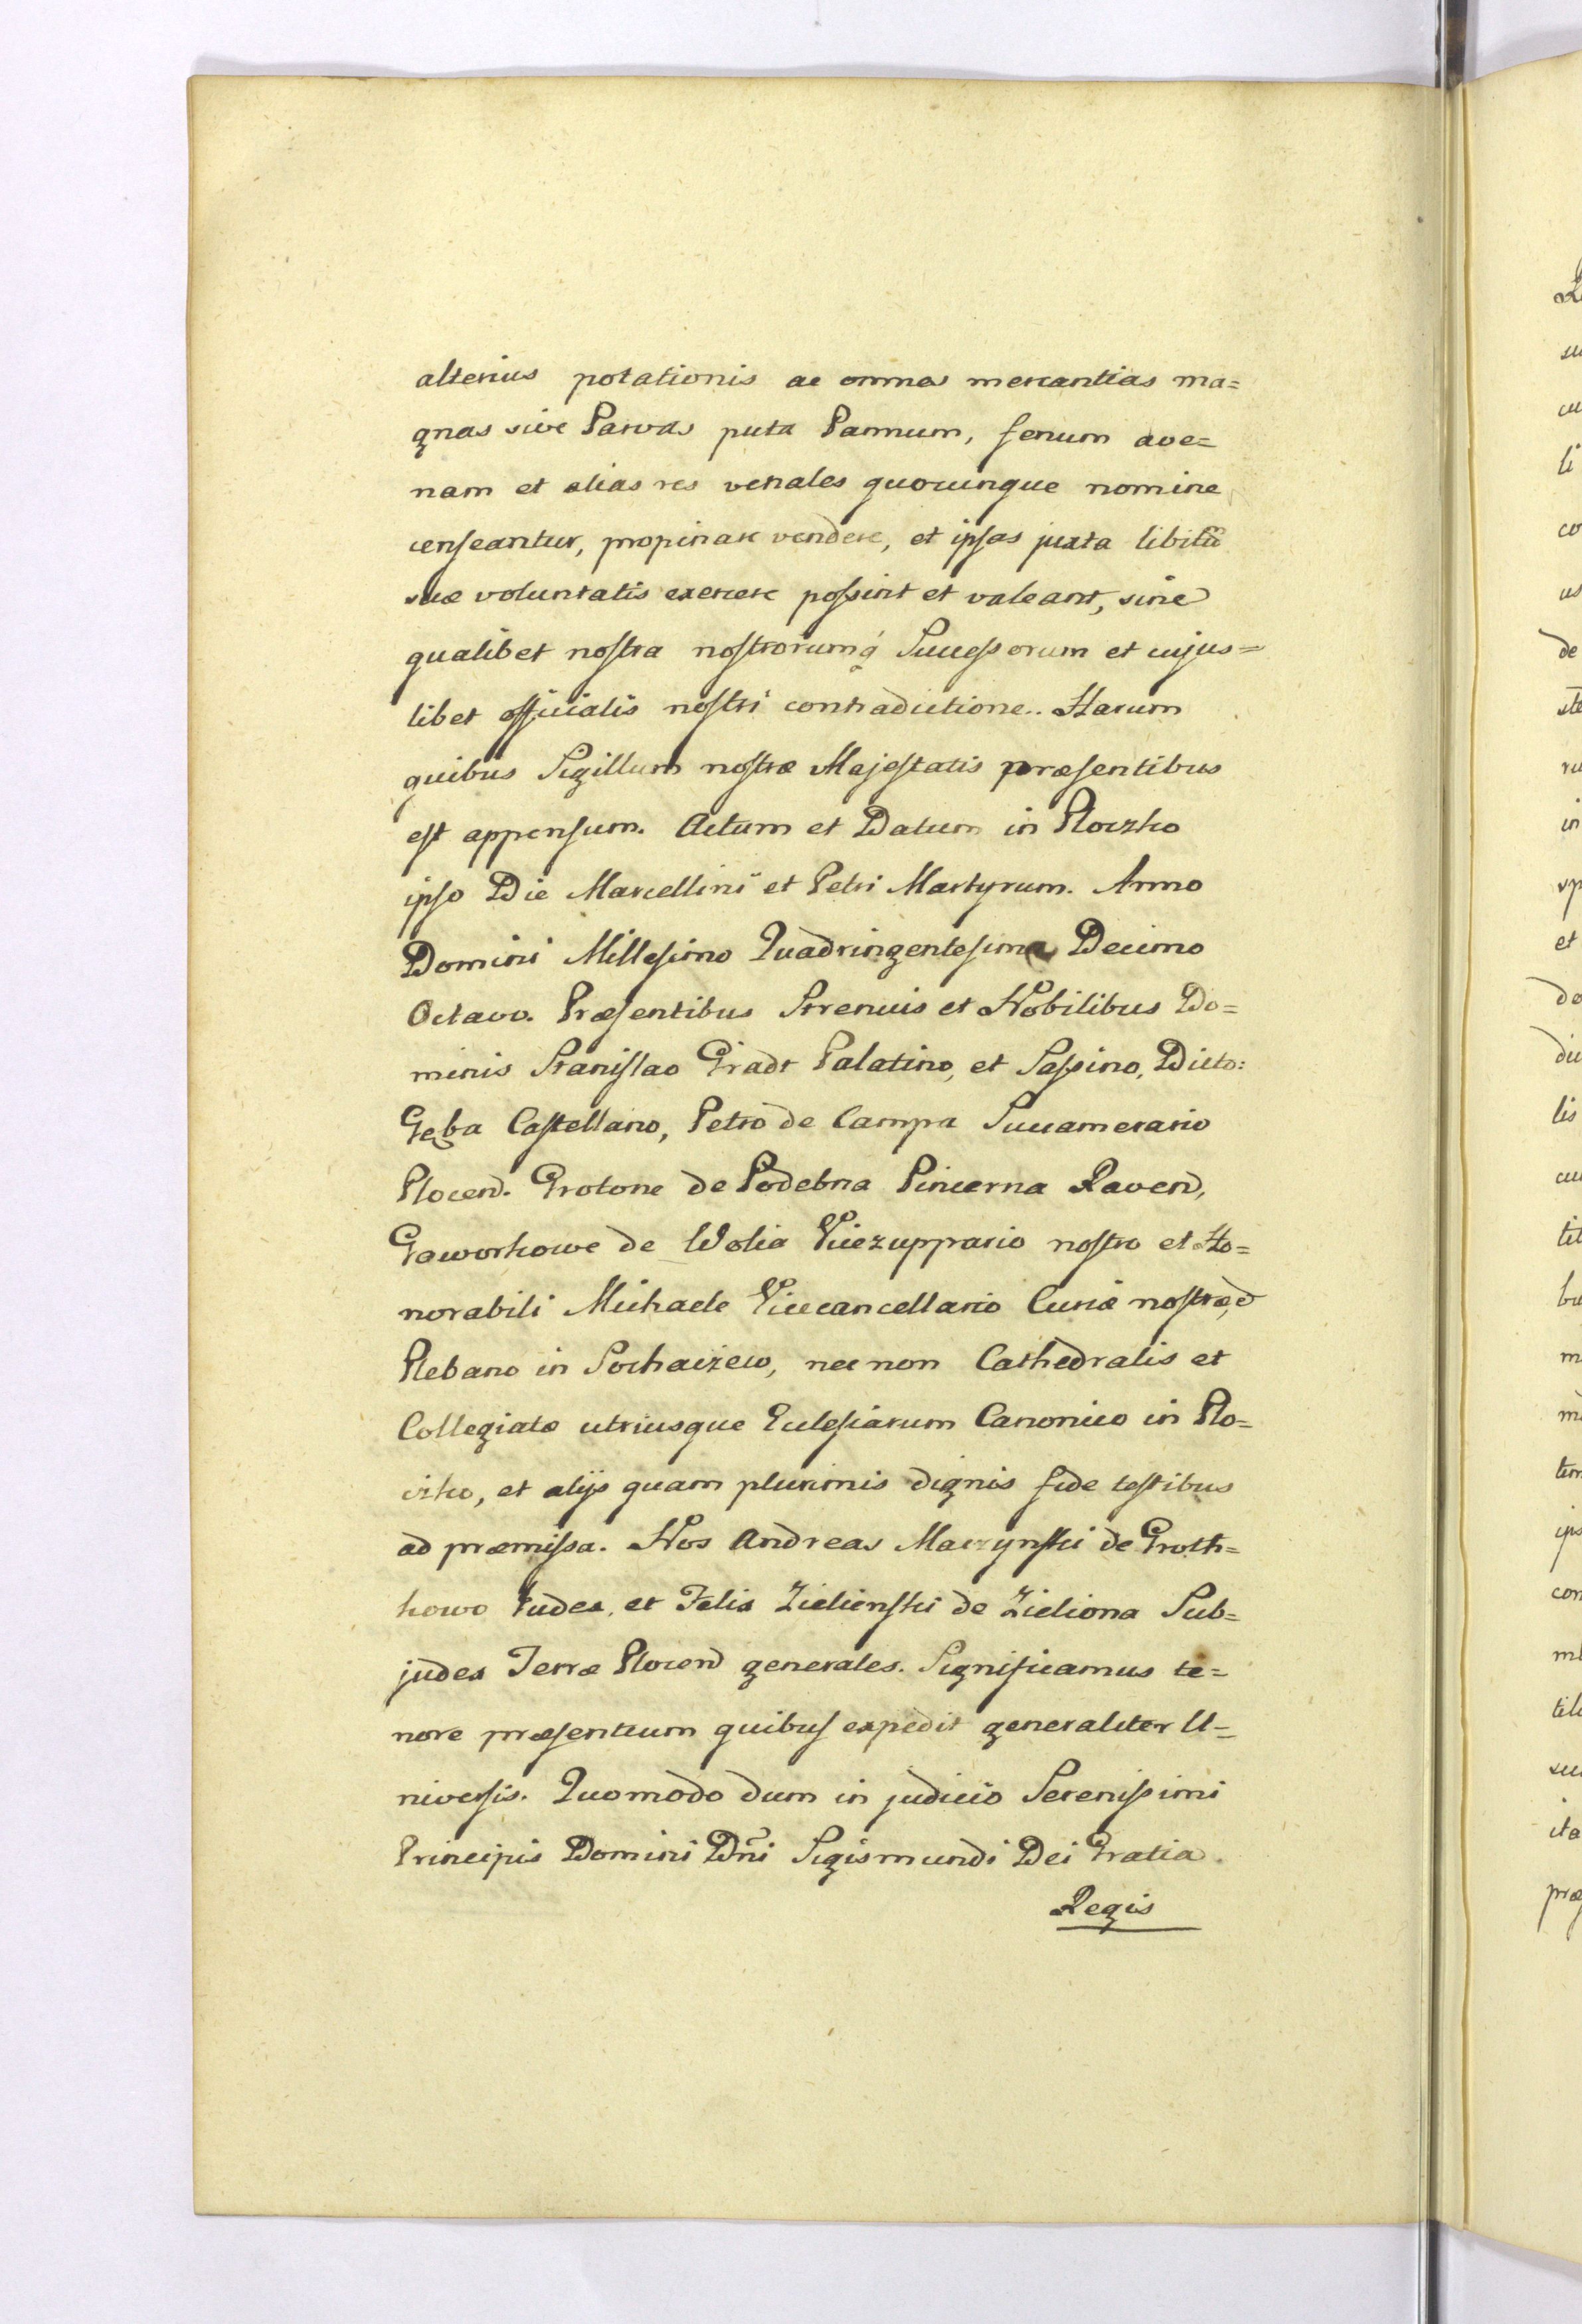 alterius potationis ac omnes mercantias ma=
gnas sive Parvas puta Pannum, fenum ave=
nam et alias res venales quocunque nomine
censeantur, propinare vendere, et ipsas juxta libitũ
suæ voluntatis exercere possint et valeant, sine
qualibet nostra nostrorumq́ Successorum et cujus=
libet officialis nostri contradictione.. Harum
quibus Sigillum nostræ Majestatis præsentibus
est appensum. Actum et Datum in Ploczko
ipso Die Marcellini et Petri Martyrum. Anno
Domini Millesimo Quadringentesimo Decimo
Octavo. Præsentibus Strenuis et Nobilibus Do=
minis Stanislao Gradt Palatino, et Sassino, Dicto:
Gęba Castellano, Petro de Campa Succamerario
Plocen. Grotone de Podebna Pincerna Raven,
Gaworkowe de Wolia Vicezuppario nostro et Ho=
norabili Michaele Vicecancellario Curiæ nostræ,
Plebano in Sochaczew, nec non Cathedralis et
Collegiatæ utriusque Eclesiarum Canonico in Plo=
czko, et alijs quam plurimis dignis fide testibus
ad præmissa. Nos Andreas Maczynski de Groth=
kowo Iudex, et Felix Zielienski de Zieliona Sub=
judex Terræ Plocen generales. Significamus te=
nore præsentium quibus expedit generaliter U=
niversis. Quomodo dum in judicio Serenissimi
Principis Domini Dñi Sigismundi Dei Gratia.
Regis